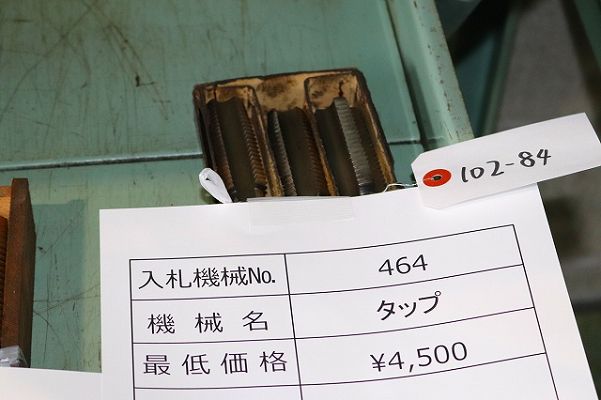 102-84
入札機械No. 464
機械名 タップ
最低価格 ¥4,500